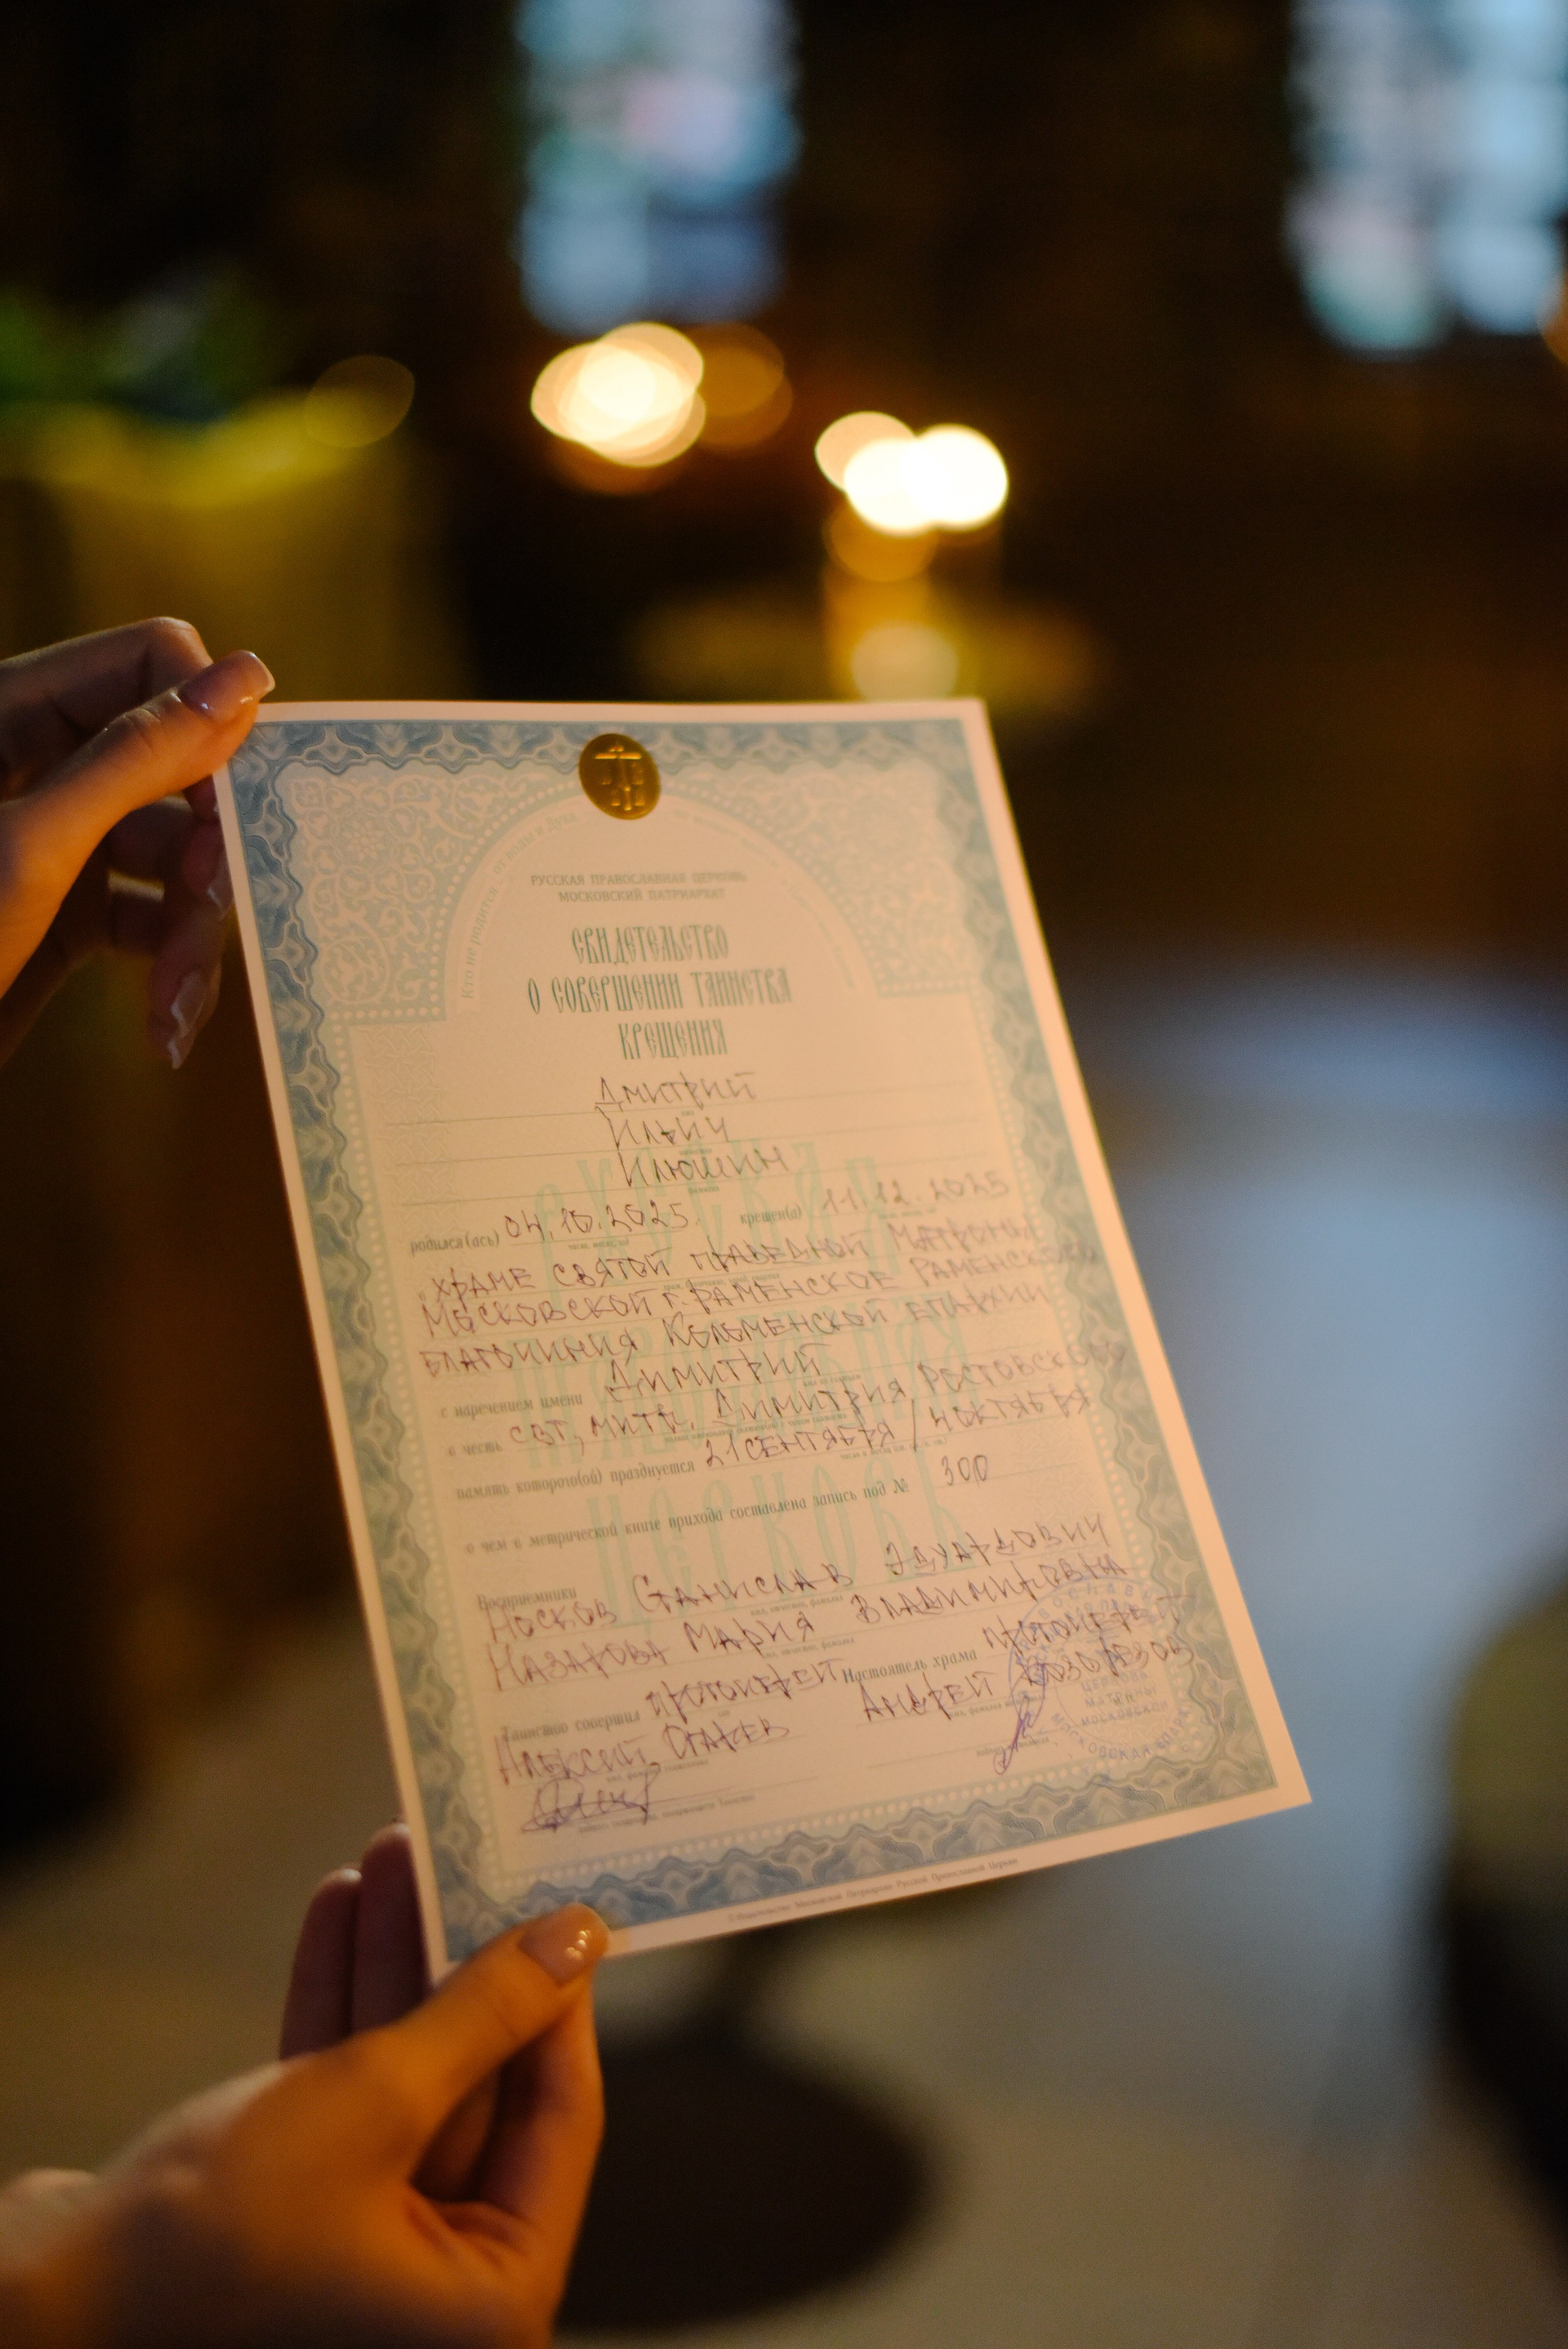 Кто не родится от воды и Духа
РУССКАЯ ПРАВОСЛАВНАЯ ЦЕРКОВЬ
МОСКОВСКИЙ ПАТРИАРХАТ
СВИДЕТЕЛЬСТВО
О СОВЕРШЕНИИ ТАИНСТВА
КРЕЩЕНИЯ
Дмитрий
Ильич
Илюшин
родился(ась) 04.10.2025. крещен(а) 11.12.2025
в ХРАМЕ СВЯТОЙ ПРАВЕДНОЙ МАТРОНЫ
МОСКОВСКОЙ г. РАМЕНСКОЕ РАМЕНСКОГО
БЛАГОЧИНИЯ КОЛОМЕНСКОЙ ЕПАРХИИ
с наречением имени ДИМИТРИЙ
в честь СВТ, МИТР. ДИМИТРИЯ РОСТОВСКОГО
память которого(ой) празднуется 21 СЕНТЯБРЯ / 4 ОКТЯБРЯ
о чем в метрической книге прихода составлена запись под № 300
Восприемники НОСКОВ СТАНИСЛАВ ЭДУАРДОВИЧ
НАЗАРОВА МАРИЯ ВЛАДИМИРОВНА
Таинство совершил ПРОТОИЕРЕЙ
АЛЕКСИЙ
Настоятель храма ПРОТОИЕРЕЙ
АНДРЕЙ
ЦЕРКОВЬ
МАТРОНЫ
МОСКОВСКОЙ
РУССКАЯ
ПРАВОСЛАВНАЯ
ЦЕРКОВЬ
© Издательство Московской Патриархии Русской Православной Церкви